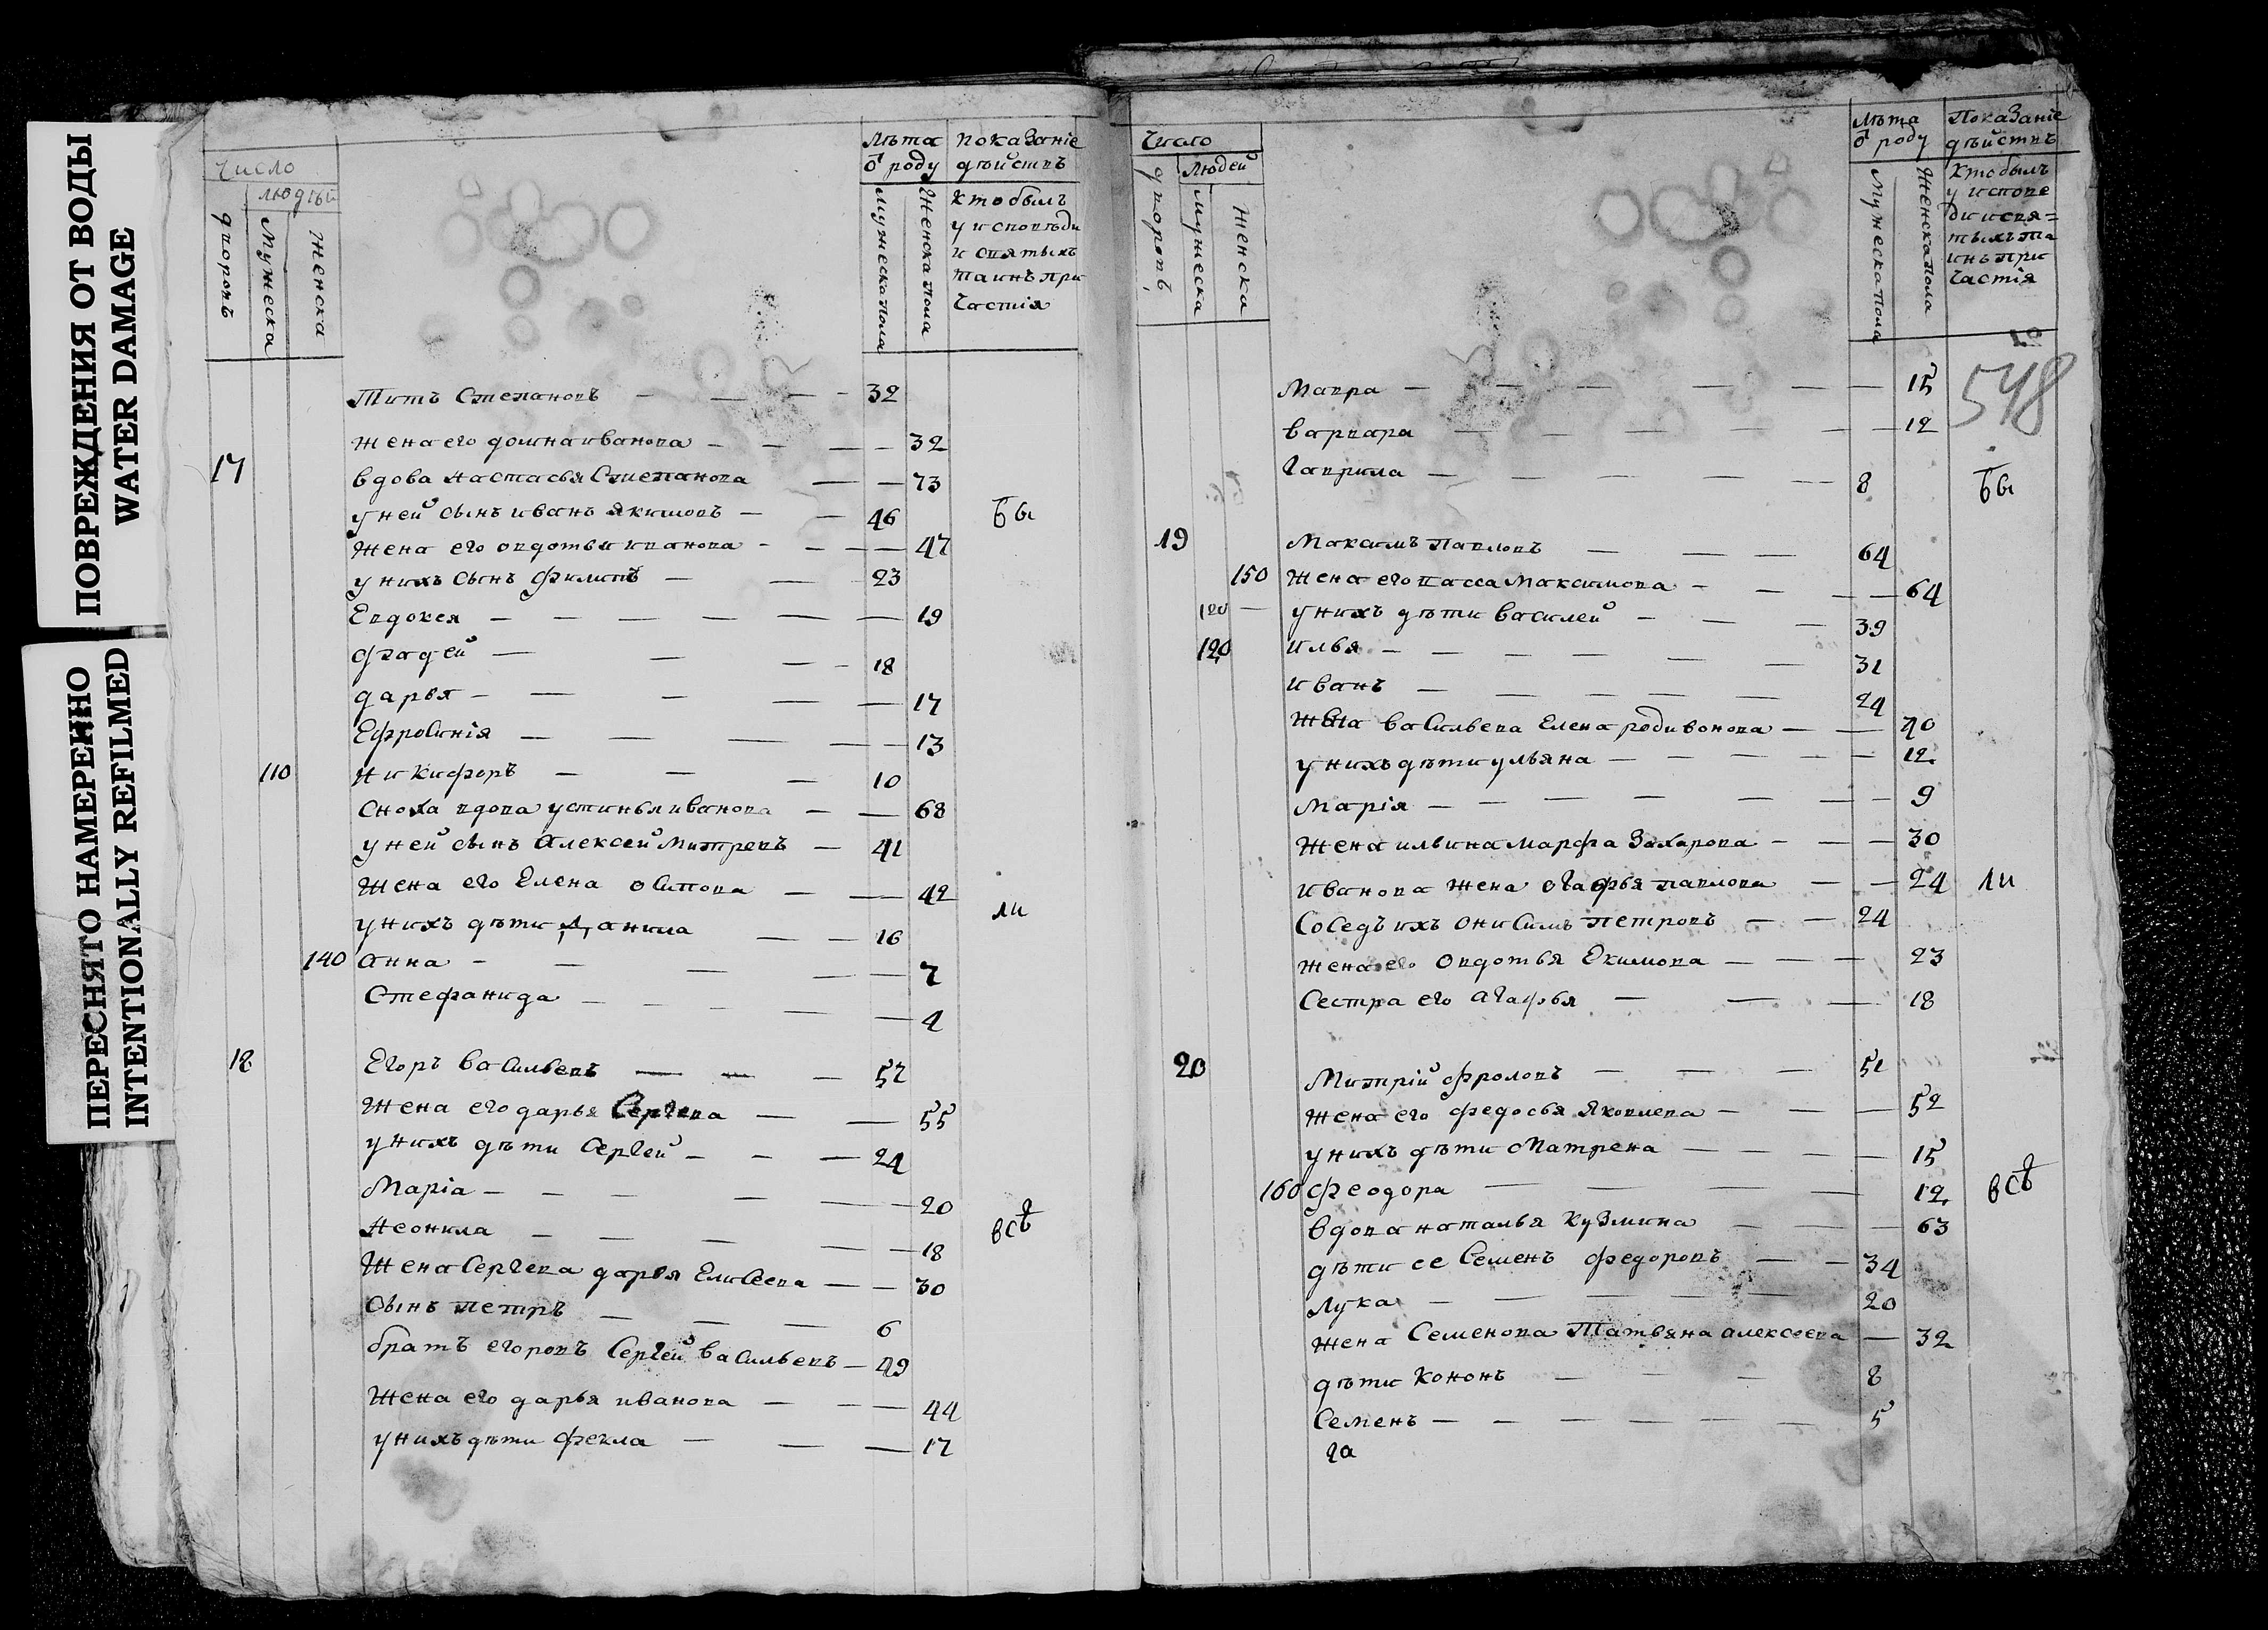 ПОВРЕЖДЕНИЯ ОТ ВОДЫ
WATER DAMAGE
ПЕРЕСНЯТО НАМЕРЕННО
INTENTIONALLY REFILMED
Число
людѣй
дворовъ
Мужеска
Женска
Лѣта
ѿ роду
Мужеска пола
Женска пола
показаніе
дѣйствъ
кто былъ
у исповѣди
и святыхъ
таинъ при
частія
Титъ Степановъ — — — 32
жена его домна иванова — — — — 32
17 вдова настасья Степанова — — 73
у ней сынъ иванъ якимовъ — — 46 бы
жена его овдотья иванова - — — — 47
у нихъ сынъ филипъ — — 23
Евдокея — — — — — — 19
фадей — — — - 18
дарья — — — — — 17
Ефросинія — — — — — 13
110 никифоръ — — — 10
сноха вдова устинья иванова — — 68
у ней сынъ алексей митревъ — 41
жена его Елена осипова — — 42
у нихъ дѣти Данила — — 16 ли
140 анна - — — — — 7
Стефанида — — — — — 4
18 Егоръ васильевъ — — — 57
жена его дарья Сергева — — 55
у нихъ дѣти Сергей — — — 24
Маріа — — — — — 20
неонила — — — — — 18 всѣ
жена Сергева дарья Елисеева — — 30
сынъ петръ — — — 6
братъ егоровъ Сергей васильевъ — 49
жена его дарья иванова — — — 44
у нихъ дѣти фекла — — — 17
Число
людей
дворовъ
мужеска
женска
Лѣта
ѿ роду
Мужеска пола
Женска пола
Показаніе
дѣйствъ
кто былъ
у испове
ди и свя=
тыхъ та
инъ при
частія
548
Мавра — — — — — — 15
варвара — — — — — 12
гаврила — — — — — 8 бы
19 Максимъ павловъ — — — 64
150 жена его васса Максимова - — — — 64
120 — у нихъ дѣти василей — — — 39
120 илья — — — — — — 31
иванъ — — — — — 24
жена васильева Елена родивонова — — 40
у нихъ дѣти ульяна — — — — — 12
марія — — — — — — — 9
жена ильина марфа Захарова - — — 30
иванова жена огафья павлова — — 24 ли
Соседъ ихъ онисимъ петровъ — — 24
жена его овдотья Екимова — — — 23
Сестра его агафья — — — 18
20 Митрій фроловъ — — — 51
жена его федосья яковлева — — — 52
у нихъ дѣти Матрена — — — — 15
160 феодора — — — — 12 всѣ
вдова наталья кузмина — — — 63
дѣти ее Семенъ федоровъ — — 34
лука — — — — — 20
жена Семенова Татьяна алексеева — 32
дѣти кононъ — — — 8
Семенъ — — — — — — 5
га